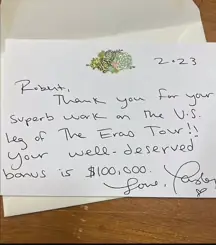 2.23
Robert,
Thank you for your
superb work on the U.S.
leg of The Eras Tour!!
Your well-deserved
bonus is $100,000.
Love,